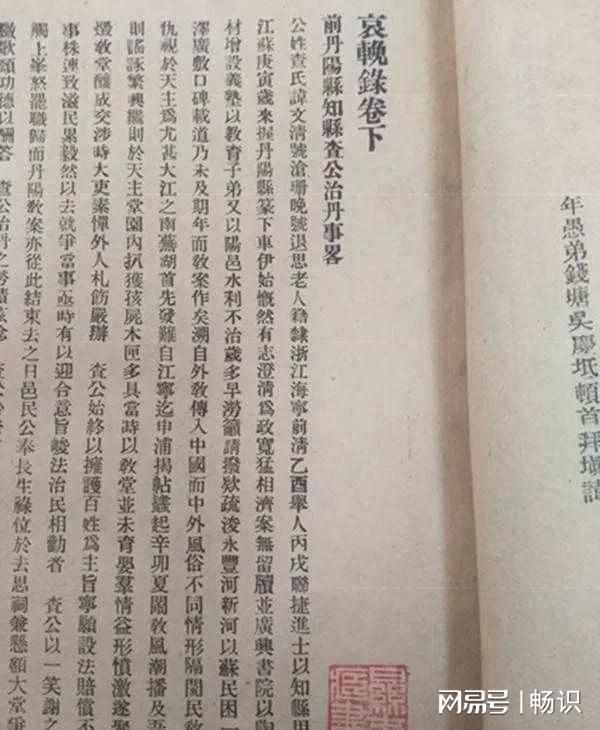 年愚弟錢塘吳慶坻頓首拜塡諱
哀輓錄卷下
前丹陽縣知縣查公治丹事畧
公姓查氏諱文清號滄珊晚號退思老人籍隸浙江海寧前清乙酉舉人丙戌聯捷進士以知縣用
江蘇庚寅歲來握丹陽縣篆下車伊始慨然有志澄清爲政寬猛相濟案無留牘並廣興書院以陶
材增設義塾以敎育子弟又以陽邑水利不治歲多旱澇籲請撥欵疏浚永豐河新河以蘇民困一
澤廣敷口碑載道乃未及期年而敎案作矣溯自外敎傳入中國而中外風俗不同情形隔閡民敎
仇視於天主爲尤甚大江之南蕪湖首先發難自江寧迄申浦揭帖蠭起辛卯夏鬧敎風潮播及吾
則謠諑繁興繼則於天主堂園內扒獲孩屍木匣多具當時以敎堂並未育嬰羣情益形憤激遂聚
燬敎堂釀成交涉時大吏素憚外人札飭嚴辦 查公始終以擁護百姓爲主旨寧願設法賠償不
事株連致滋民累毅然以去就爭當事亟時有以迎合意旨峻法治民相勸者 查公以一笑謝之
觸上峯怒罷職歸而丹陽敎案亦從此結束去之日邑民公奉長生祿位於去思祠兼懸額大堂爭
歌頌功德以酬答 查公治丹之勞績茲念 查公
網易号 | 畅识